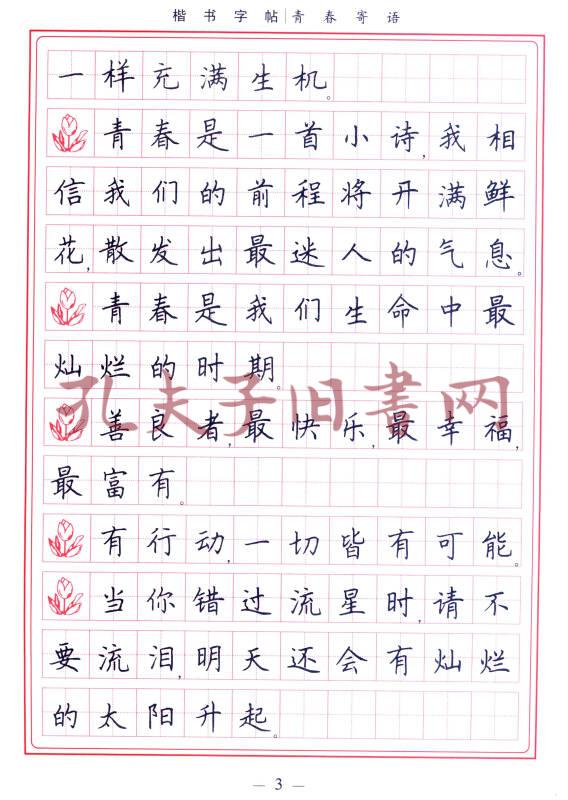 楷书字帖|青春寄语
一样充满生机。
青春是一首小诗,我相
信我们的前程将开满鲜
花,散发出最迷人的气息。
青春是我们生命中最
灿烂的时期。
孔夫子旧書网
善良者,最快乐,最幸福,
最富有。
有行动,一切皆有可能。
当你错过流星时,请不
要流泪,明天还会有灿烂
的太阳升起。
— 3 —